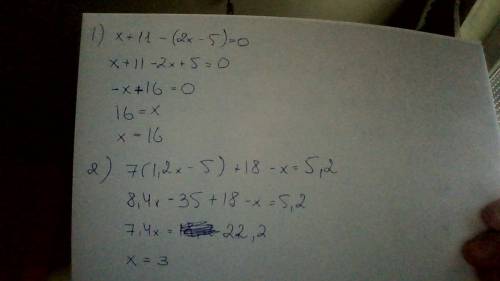 1) x+11-(2x-5)=0
x+11-2x+5=0
-x+16=0
16=x
x=16
2) 7(1,2x-5)+18-x=5,2
8,4x-35+18-x=5,2
7,4x= 22,2
x=3